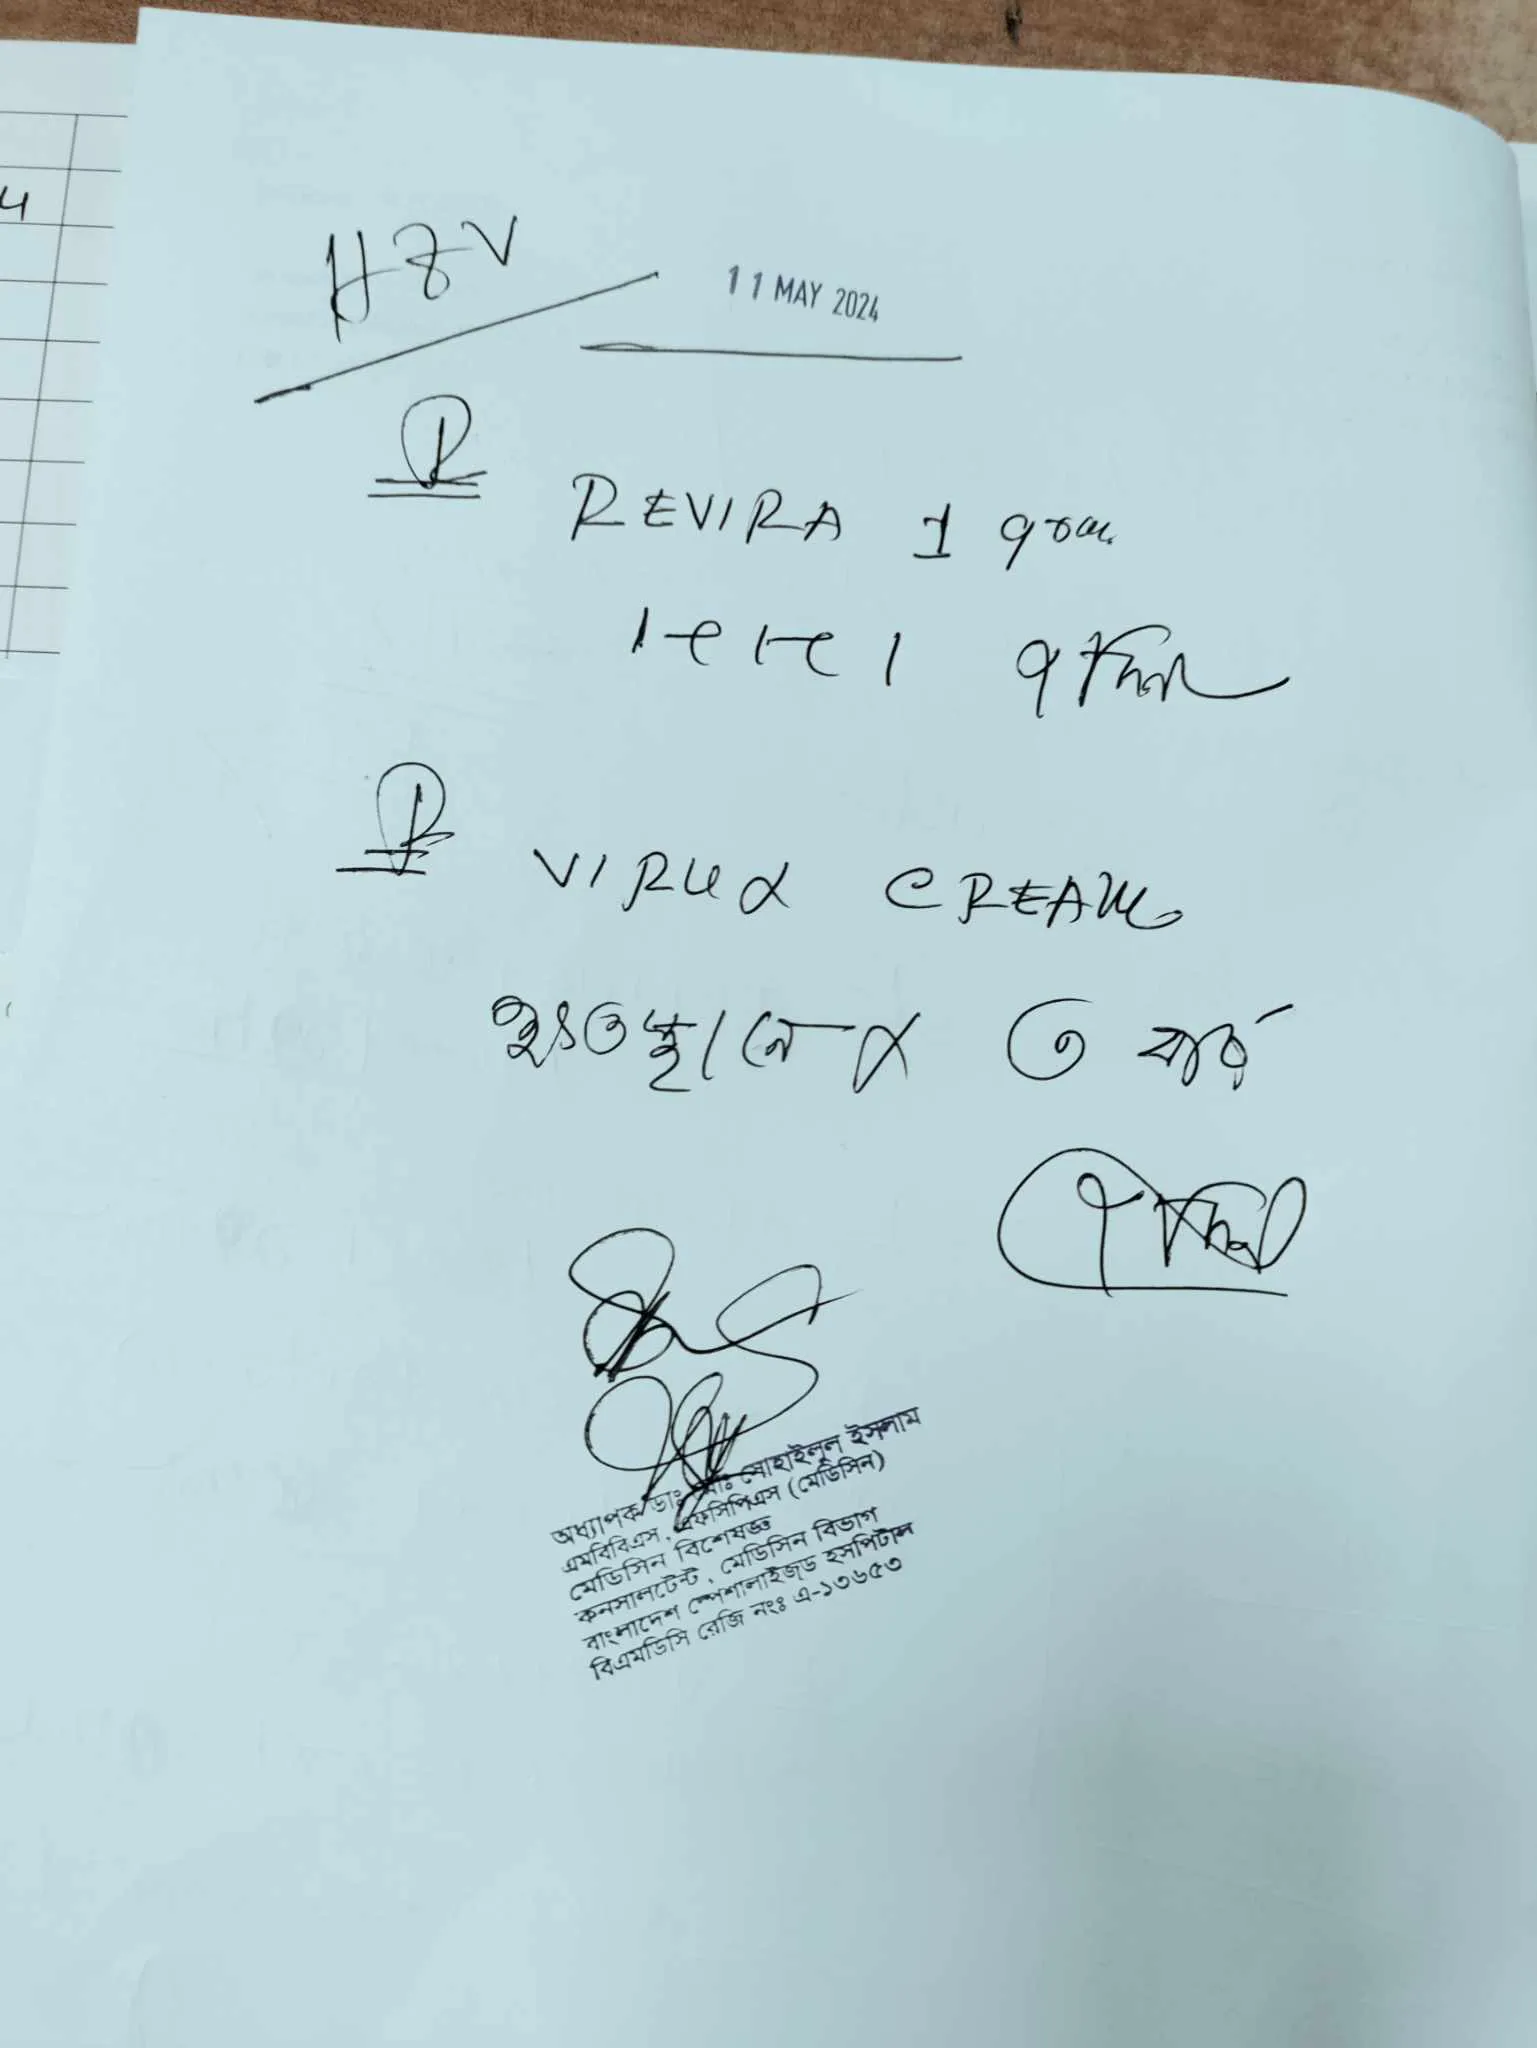 4
HZV
11 MAY 2024
R
REVIRA 1 gram
1-e 1-e 1 ৭ দিন
R
VIRUX CREAM
ক্ষতস্থানে ৩ বার
৭ দিন
অধ্যাপক ডাঃ মোঃ সোহাইলুল ইসলাম
এমবিবিএস, এফসিপিএস (মেডিসিন)
মেডিসিন বিশেষজ্ঞ
কনসালটেন্ট, মেডিসিন বিভাগ
বাংলাদেশ স্পেশালাইজড হসপিটাল
বিএমডিসি রেজি নংঃ এ-১৩৬৫৩